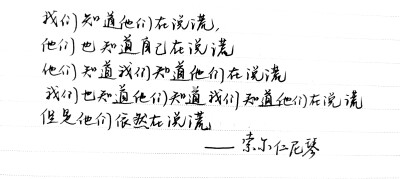 我们知道他们在说谎,
他们也知道自己在说谎
他们知道我们知道他们在说谎
我们也知道他们知道我们知道他们在说谎
但是他们依然在说谎
—— 索尔仁尼琴